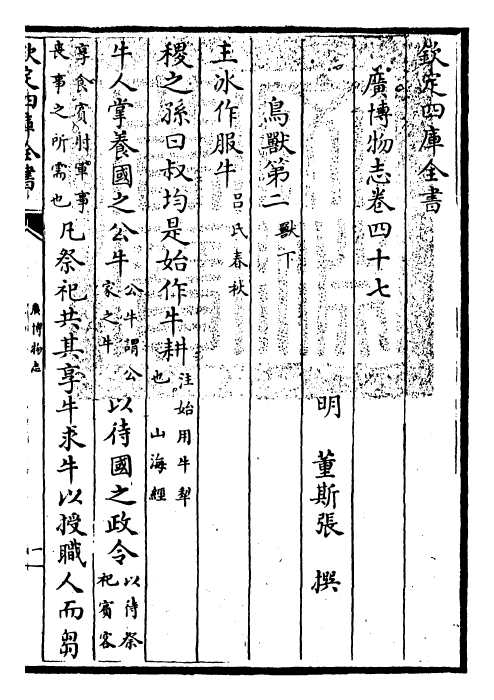 欽定四庫全書
廣博物志卷四十七
明 董斯張 撰
鳥獸第二 獸下
王冰作服牛 呂氏春秋
稷之孫曰叔均是始作牛耕 注始用牛犂也 山海經
牛人掌養國之公牛 公牛謂公家之牛 以待國之政令 以待祭祀賓客
享食賓射軍事喪事之所需也 凡祭祀共其享牛求牛以授職人而芻
欽定四庫全書
廣博物志
一